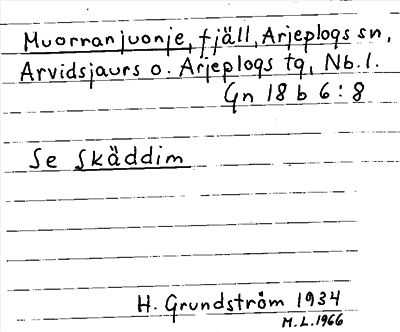 Muorranjuonje, fjäll, Arjeplogs sn,
Arvidsjaurs o. Arjeplogs tg, Nb. l.
Gn 18 b 6 : 8
Se Skäddim
H. Grundström 1934
M. L. 1966